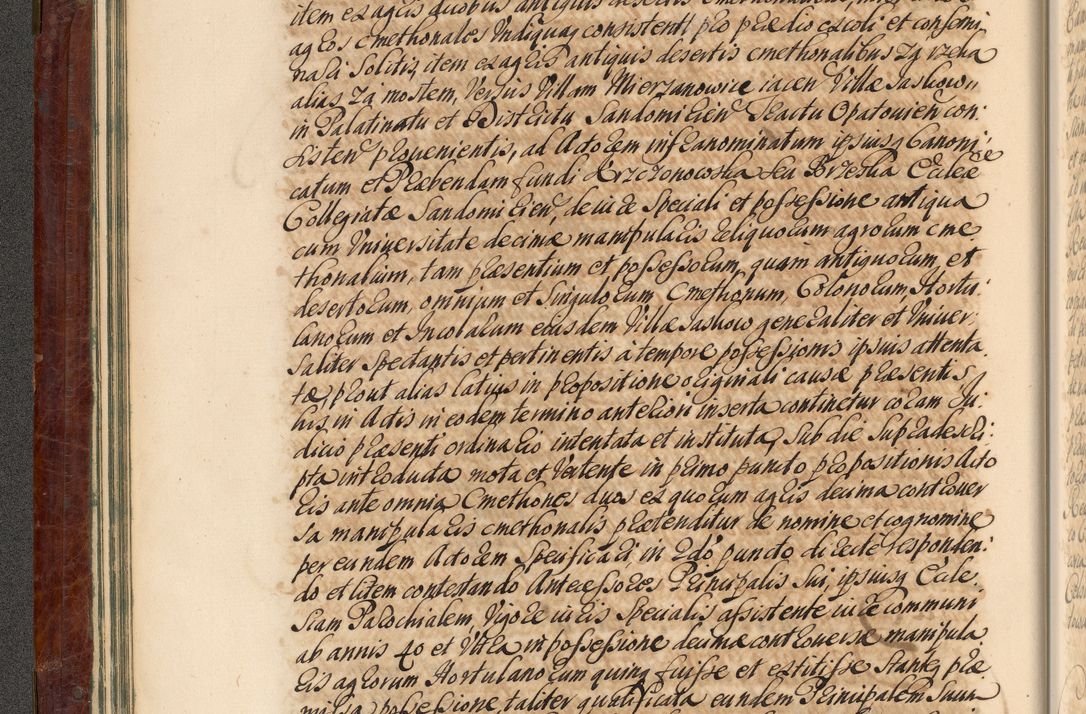 item ex agris duobus antiquis desertis cmethonalibus,
agros cmethonales Undiquaq consistent, pro prædio excoli et consemi
nari Solitis, item ex agris antiquis desertis cmethonalibus Za rzeka
alias Za mostem, Versus Villam Mierzanowice iacen Villæ Jashow,,
in Palatinatu et Districtu Sandomirien Tractu Opatovien con:
sisten provenientis, ad Actorem infranominatum ipsiusq Canoni:
catum et Præbendam fundi Krzczonowska seu Brzeska Eccleæ
Collegiatæ Sandomirien, de iure Speciali et possessione antiqua
cum Universitate decimæ manipularis reliquorum agrorum cme
thonalium, tam præsentium et possessorum, quam antiquorum, et
desertorum, omnium et Singulorum, Cmethonum, Colonorum, Hortu:
lanorum et Incolarum eiusdem Villæ Jashow generaliter et Univer:
saliter spectantis et pertinentis à tempore possessionis ipsius attenta.
tæ, prout alias latius in propositione originali causæ præsentis
his, in Actis in eodem termino anteriori inserta continetur coram Ju:
dicio præsenti ordinario intentata et instituta, Sub die Supradescri:
pta introducta mota et Vertente in primo puncto propositionis Acto
ris ante omnia Cmethones duos ex quorum agris decima controver
sa manipularis cmethonalis prætenditur de nomine et cognomine
per eundem Actorem Specificari, in 2dó puncto directe responden:
do et litem contestando Antecessores Principalis Sui, ipsiusq Eccle.
siam Parochialem, Vigore iuris Specialis assistente iure communi
ab annis 40 et Ultra in possessione decimæ controversæ manipula
ris agrorum Hortulanorum quinq fuisse et extitisse Stanteq præ
missa possessione, taliter qualificata eundem Principalem Suum